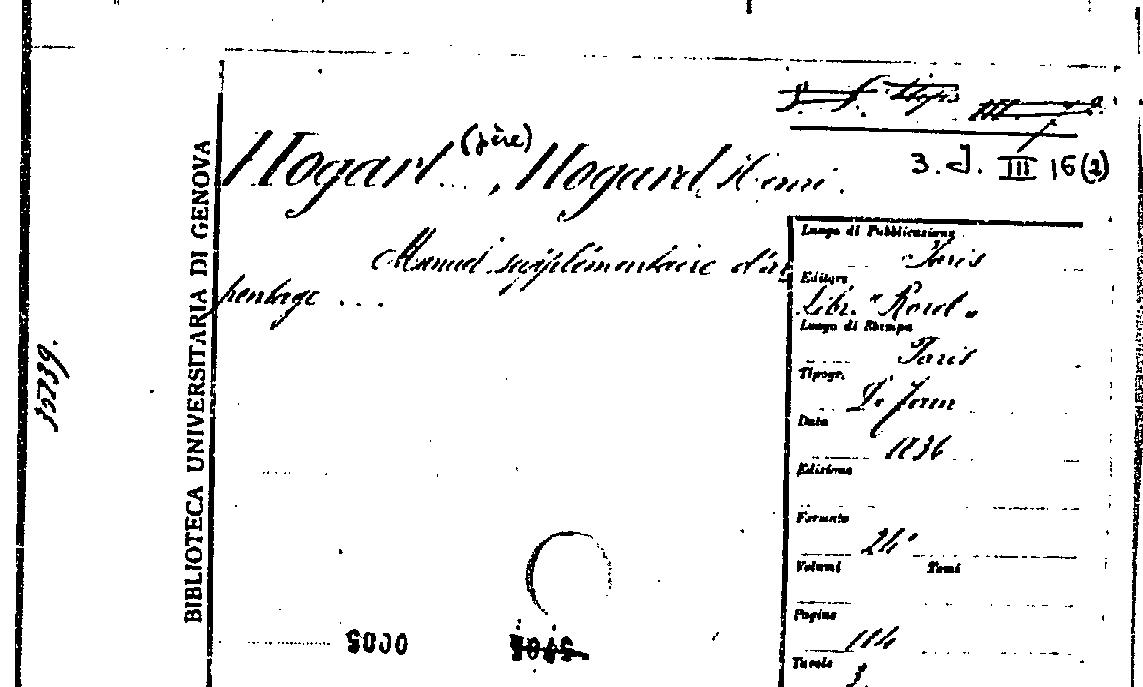 BIBLIOTECA UNIVERSITARIA DI GENOVA
35739.
Hogard (père), Hogard, Henri.
3. J. III 16(2)
Manuel supplémentaire d'ar
pentage ...
Luogo di Pubblicazione
Paris
Editore
Libr. "Roret"
Luogo di Stampa
Paris
Tipogr.
Data
1836
Edizione
Formato
24°
Volumi Tomi
Pagine
114
Tavole
3
0005